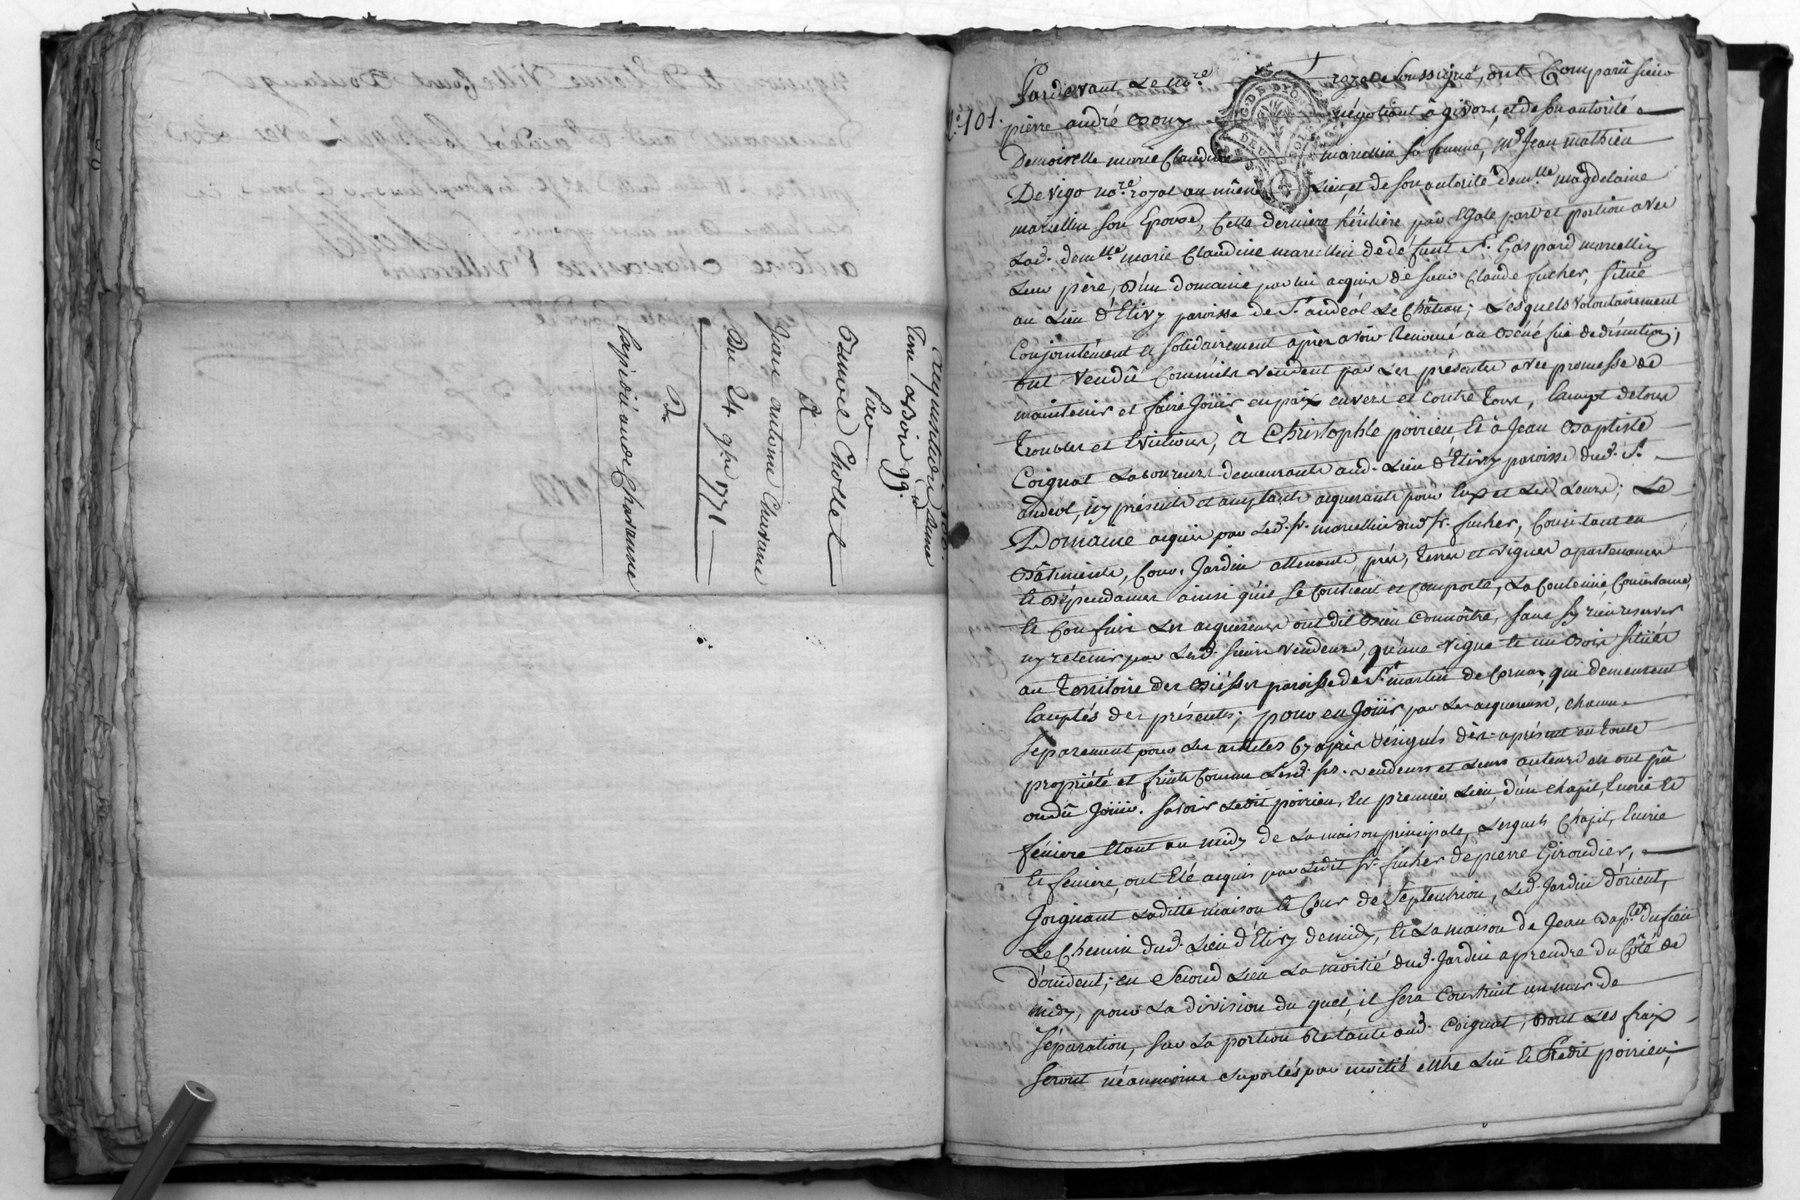 Benoit Chollet
&
Jean antoine Chavanne
Du 24 9bre 1771
De
Cappé di aude Chavanne
N° 101.
Pardevant Le no.re royal Soussigné, ont Comparû Sieur
pierre andré Bouy négotiant à givors, et de son autorité
Demoiselle marie Claudine marcellin sa femme, m.e Jean mathieu
De vigo no.re royal au même Lieu, et de son autorité dem.lle magdelaine
marcellin son Epouse, Cette derniere héritière par Egale part et portion avec
Lad. dem.lle marie Claudine marcellin de défunt S.r Gaspard marcellin
Leur père, d'un domaine par lui acquis de sieur Claude fucher, situé
au Lieu d'Etivy paroisse de S.t andéol Le Château; Lesquels volontairement
Conjointement et solidairement après avoir Renoncé au Bénéfice de division;
ont vendû Comme ils vendent par Les présentes avec promesse de
maintenir et faire Joüir en paix envers et contre Tous, Exempt de tous
Troubles et Evictions, à Christophle poirieu, et à Jean Baptiste
Coignat Laboureurs demeurants aud. Lieu d'Etivy paroisse dud. S.t
andeol, icy présents et acceptants acquerants pour Eux et Les Leurs; Le
Domaine acquis par Led. sr. marcellin dud. sr. fucher, Consistant en
Bâtiments, Cour, Jardin attenants, prés, Terres et vignes apartenances
et Dépendances ainsi qu'il se Contient et Comporte, La Contenüe, Consistance
et Confins Les acquereurs ont dit Bien Connoître, sans s'y rien reserver
ny retenir par Lesd. sieurs vendeurs, qu'une vigne et un Bois situés
au Territoire des paroisse de S.t martin de Cornas, qui demeurent
Exceptés des présentes; pour en Joüir par Les acquereurs, chacun
separement pour Les articles Cy après désignés dès-aprésent en toute
propriété et fruits Comme Lesd. srs. vendeurs et Leurs auteurs en ont pû
ou dû Joüir. savoir Ledit poirieu, En premier Lieu, d'un chapit, Ecurie et
féniere Etant au midy de La maison principale, Lesquels Chapit, Ecurie
et feniere, ont été acquis par Ledit sr. fucher de pierre Giroudier,
Joignant Laditte maison et Cour de Septentrion, Led. Jardin d'orient,
Le Chemin dud. Lieu d'Etivy de midy, et La maison de Jean Bap.te
d'occident; en second Lieu La moitié dud. Jardin a prendre du Côté de
midy, pour La division du quel, il sera Construit un mur de
séparation, sur La portion Restante aud. Coignat, Dont Les fraix
seront néanmoins suportés par moitié entre Lui et Ledit poirieu;